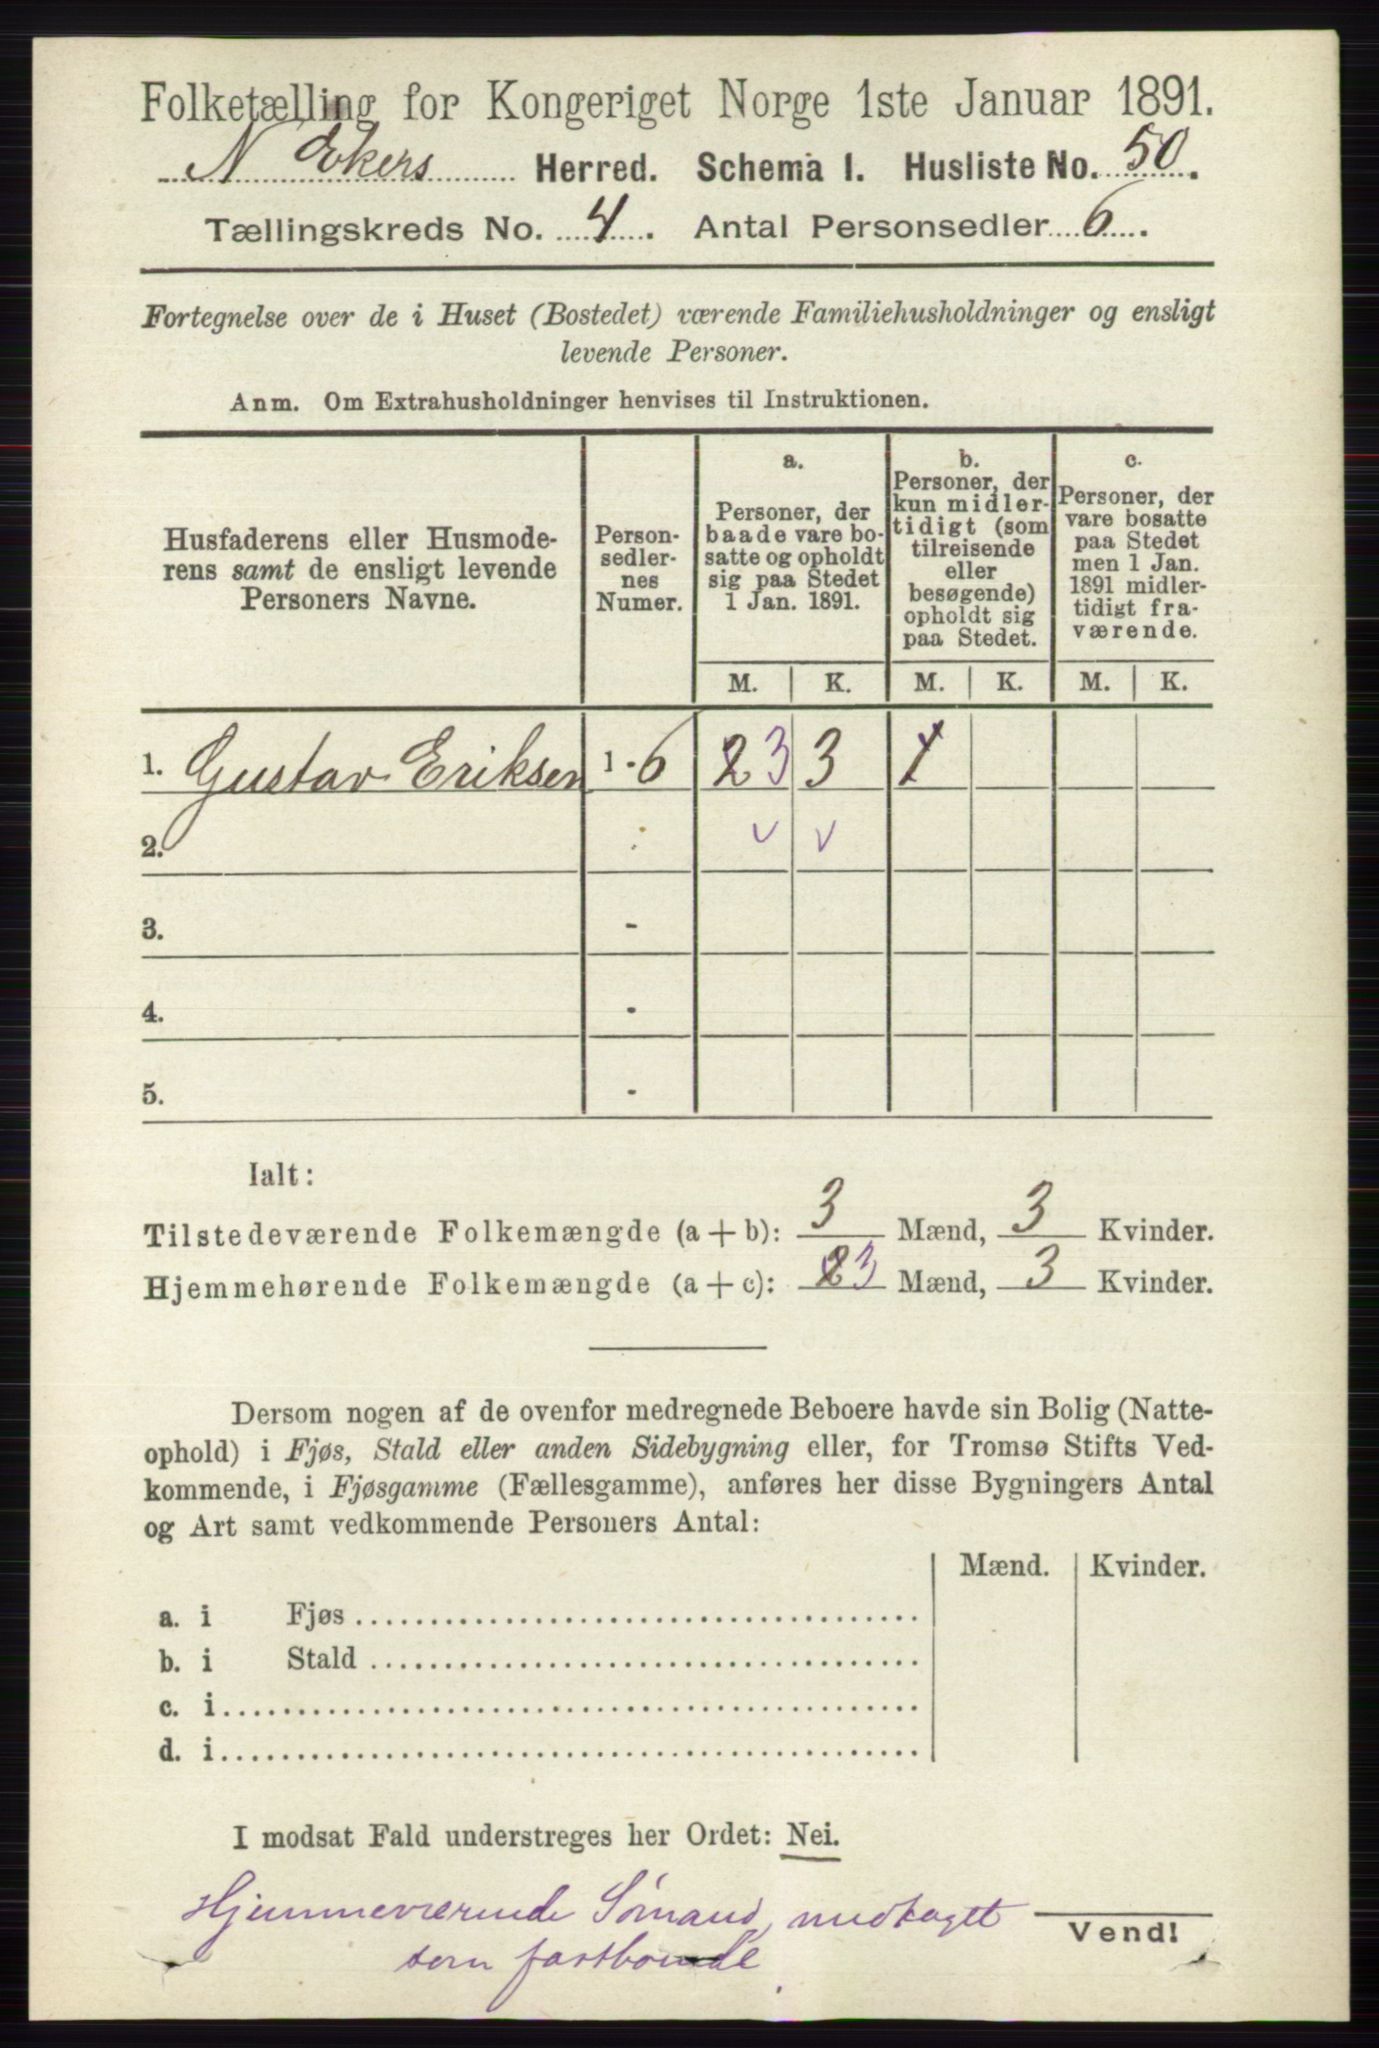 Folketælling for Kongeriget Norge 1ste Januar 1891.
N Ekers Herred. Schema I. Husliste No. 50.
Tællingskreds No. 4. Antal Personsedler 6.
Fortegnelse over de i Huset (Bostedet) værende Familiehusholdninger og ensligt
levende Personer.
Anm. Om Extrahusholdninger henvises til Instruktionen.
Husfaderens eller Husmode-
rens samt de ensligt levende
Personers Navne.
Person-
sedler-
nes
Numer.
a.
Personer, der
baade vare bo-
satte og opholdt
sig paa Stedet
1 Jan. 1891.
b.
Personer, der
kun midler-
tidigt (som
tilreisende
eller
besøgende)
opholdt sig
paa Stedet.
c.
Personer, der
vare bosatte
paa Stedet
men 1 Jan.
1891 midler-
tidigt fra-
værende.
M. K. M. K. M. K.
1. Gustav Eriksen 1 - 6 2 3 3 1
2.
3. -
4. -
5. -
Ialt:
Tilstedeværende Folkemængde (a + b): 3 Mænd, 3 Kvinder.
Hjemmehørende Folkemængde (a + c): 2 3 Mænd, 3 Kvinder.
Dersom nogen af de ovenfor medregnede Beboere havde sin Bolig (Natte-
ophold) i Fjøs, Stald eller anden Sidebygning eller, for Tromsø Stifts Ved-
kommende, i Fjøsgamme (Fællesgamme), anføres her disse Bygningers Antal
og Art samt vedkommende Personers Antal:
Mænd. Kvinder.
a. i Fjøs
b. i Stald
c. i
d. i
I modsat Fald understreges her Ordet: Nei.
Hjemmeværende Sömand, medtaget
som fastboende.
Vend!